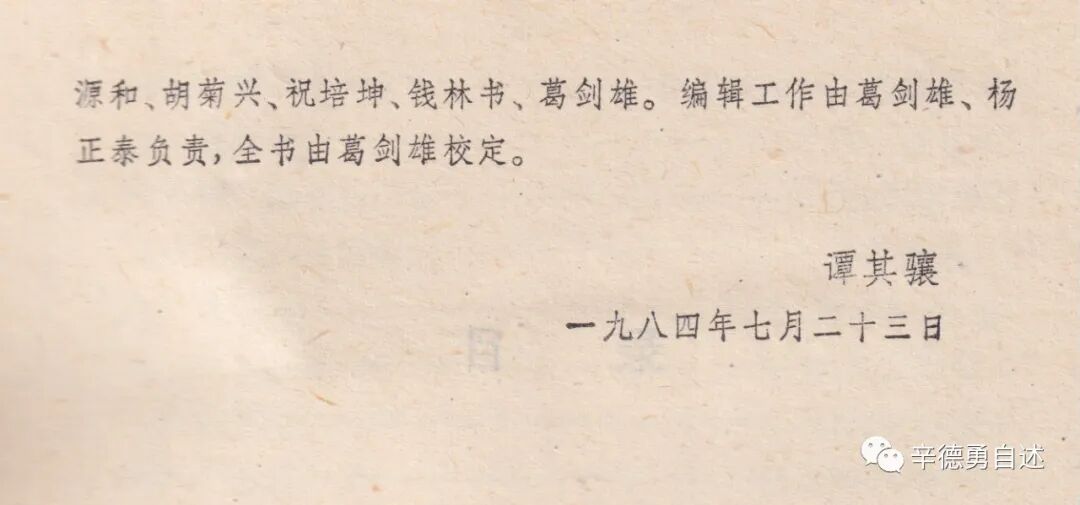 源和、胡菊兴、祝培坤、钱林书、葛剑雄。编辑工作由葛剑雄、杨
正泰负责,全书由葛剑雄校定。
谭其骧
一九八四年七月二十三日
辛德勇自述